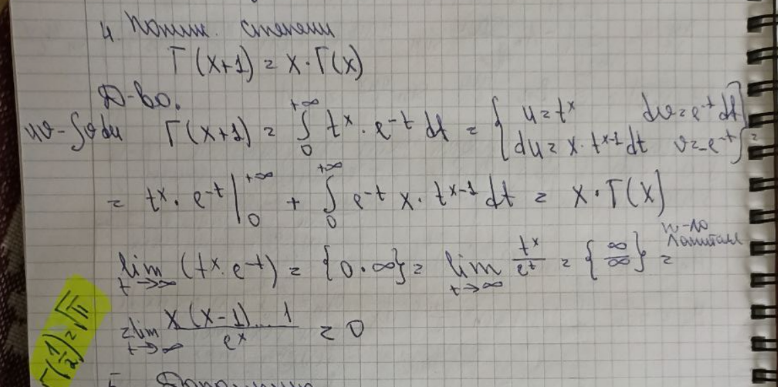 4. Пониж. степени
Γ(x+1) = x·Γ(x)
Д-во.
uv-∫vdu Γ(x+1) = ∫₀^{+∞} t^x · e^{-t} dt = { u=t^x dv=e^{-t}dt
du=x·t^{x-1}dt v=-e^{-t} } =
= t^x · e^{-t} |₀^{+∞} + ∫₀^{+∞} e^{-t} x · t^{x-1} dt = x·Γ(x)
lim_{t→∞} (t^x · e^{-t}) = {0·∞} = lim_{t→∞} t^x/e^t = {∞/∞} = п-ло Лопиталя
= lim_{t→∞} x(x-1)...1/e^x = 0
Γ(1/2)=√π